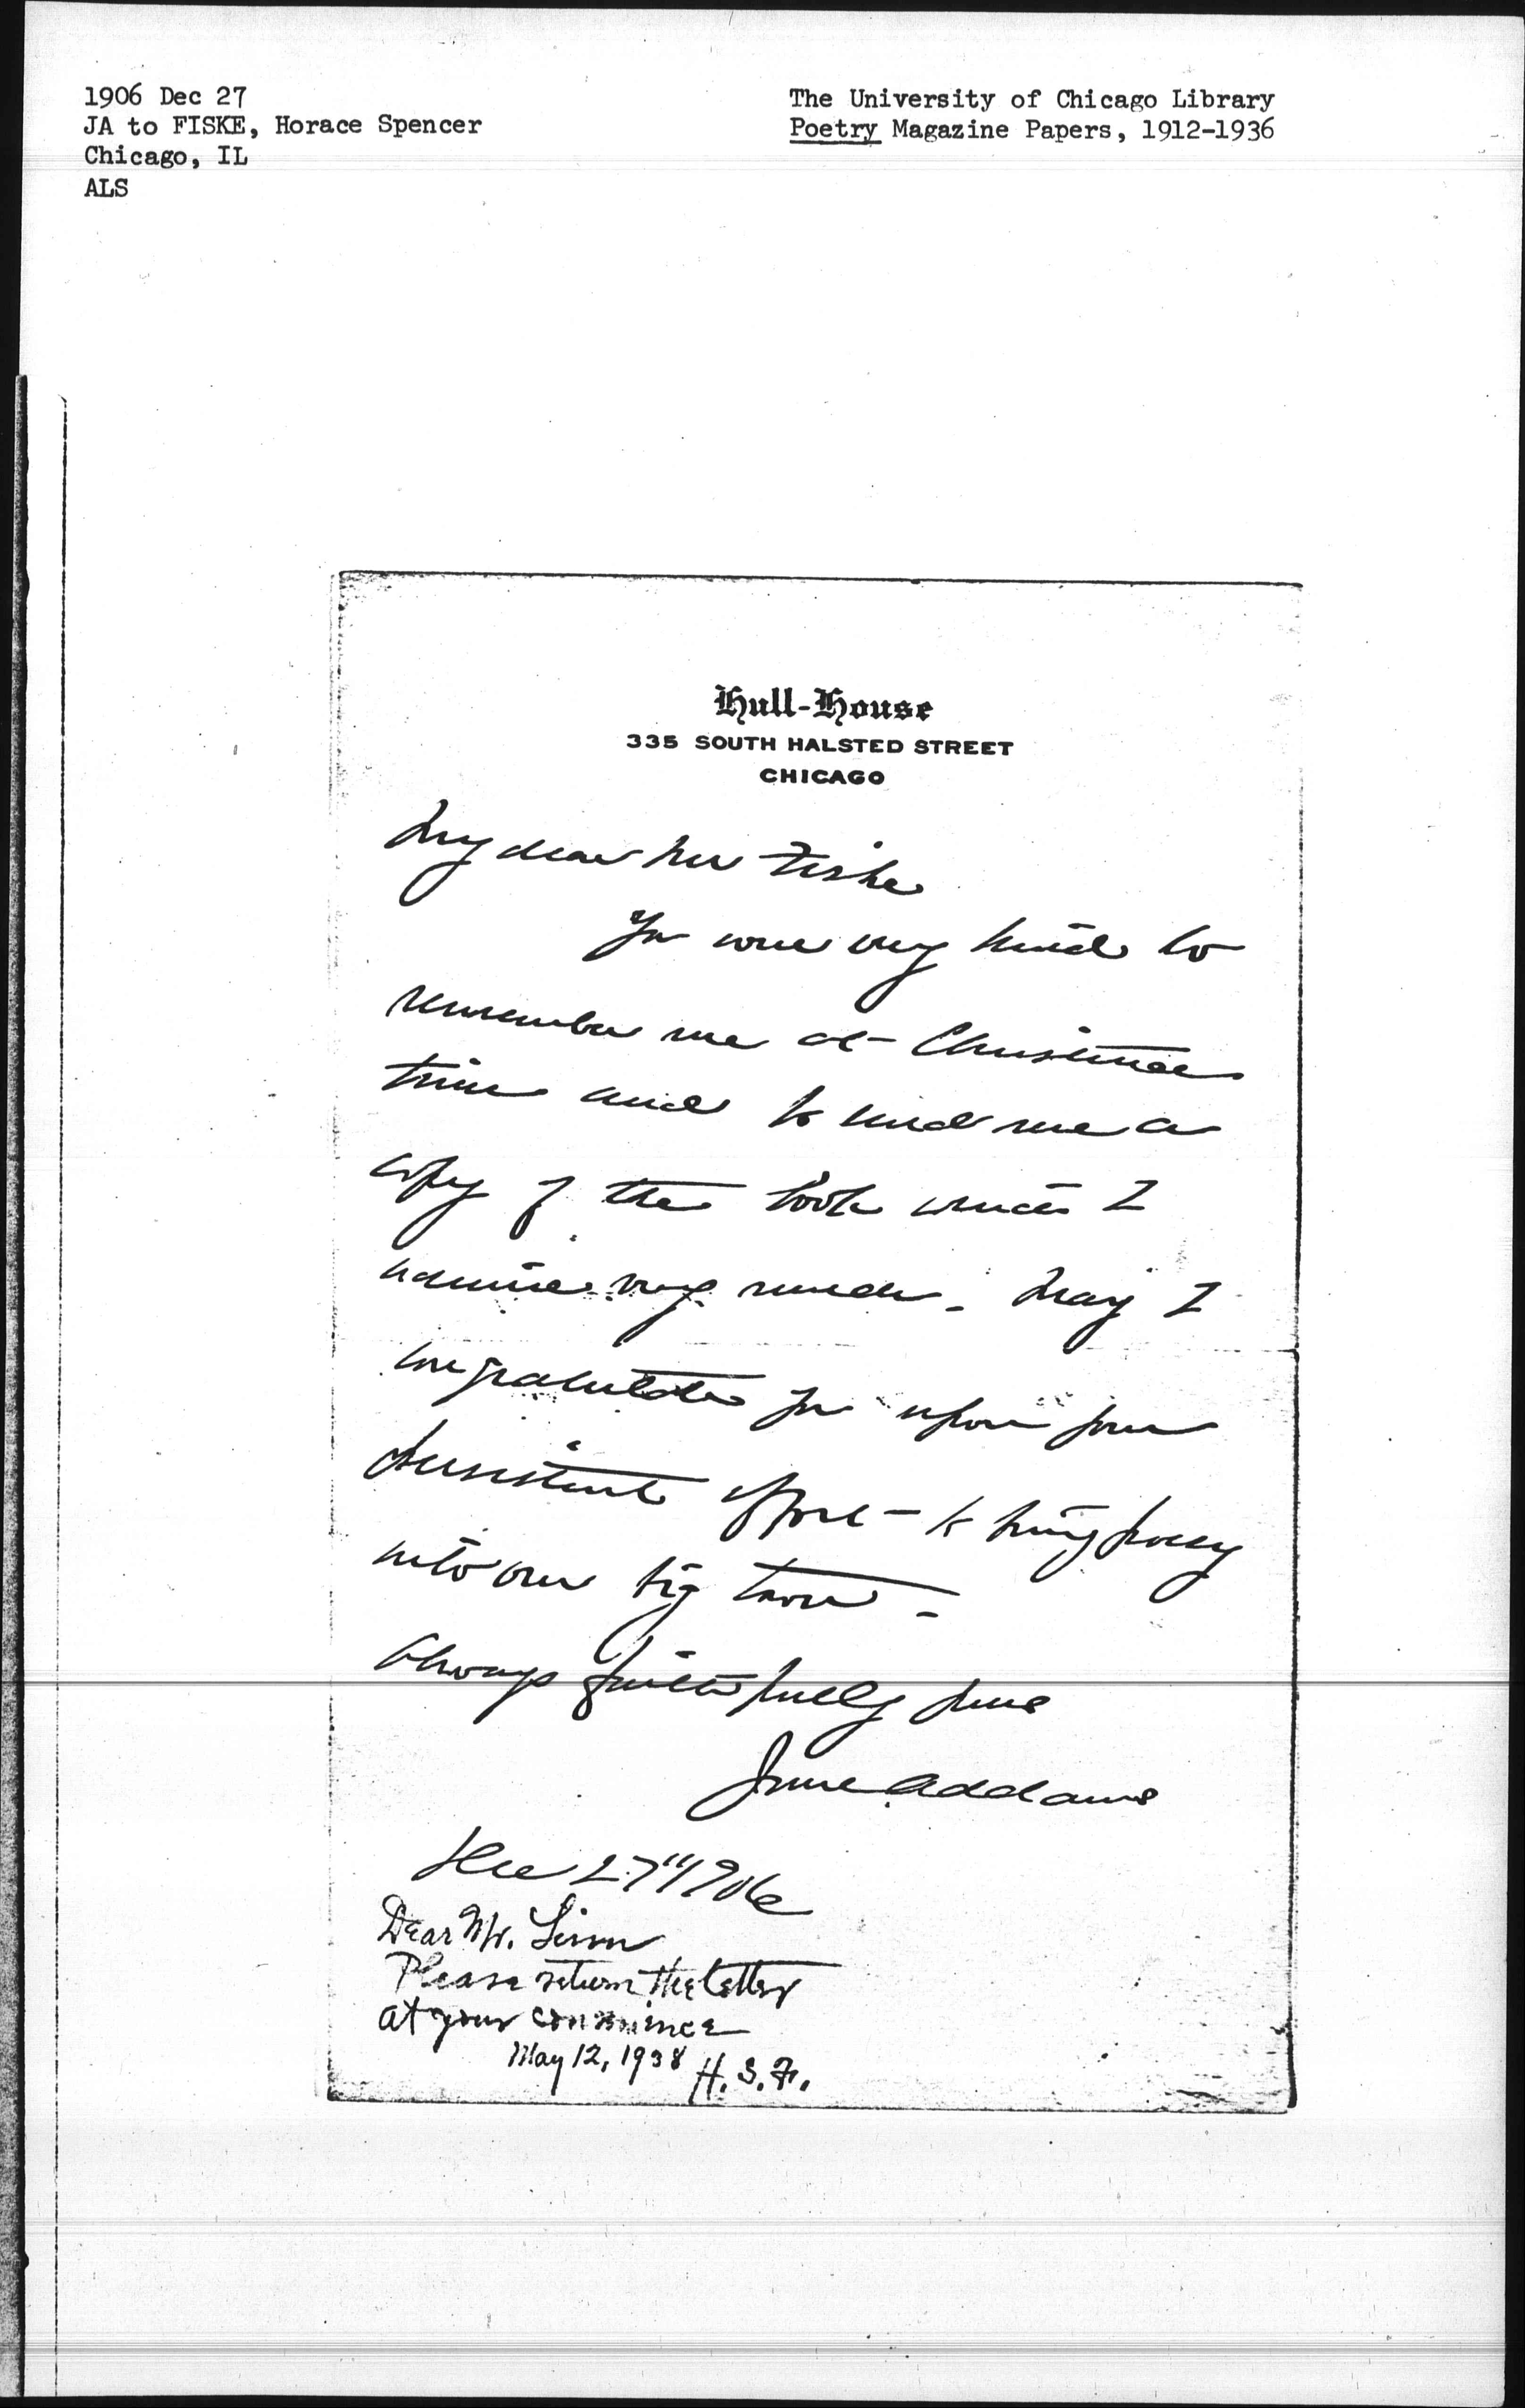 1906 Dec 27
JA to FISKE, Horace Spencer
Chicago, IL
ALS
The University of Chicago Library
Poetry Magazine Papers, 1912-1936
Hull-House
335 SOUTH HALSTED STREET
CHICAGO
My dear Mr Fiske
You were very kind to
remember me at Christmas
time and to send me a
copy of the book which I
admire very much - May I
congratulate you upon your
persistent effort - to bring poesy
into our big town -
Always faithfully yours
Jane Addams
Dec 27" 1906
Dear Mr. Linn
Please return the letter
at your convenience
May 12, 1938 H. S. F.